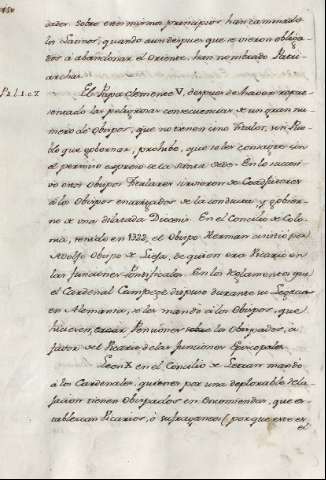 dades. Sobre estos mismos principios han caminado
los Latinos, quando aun despues que se vieron obliga-
dos à abandonar el Oriente, han nombrado Patri
archas.
El Papa Clemente V, despues de haver repre-
sentado las peligrosas consecuencias de un gran nu-
mero de Obispos, que no tienen sino Titulos, sin Pue-
blo que gobernar, prohibe, que se les consagre sin
el permiso expreso de la Santa Sede. En lo succesi-
vo estos Obispos Titulares sirvieron de Coadjutores
à los Obispos encargados de la conducta, y gobier-
no de una dilatada Diocesis. En el Concilio de Colo-
nia, tenido en 1322, el Obispo Herman asistió por
Adolfo Obispo de de quien era Vicario en
las funciones Pontificales. En los Reglamentos que
el Cardenal Campege dispuso durante su Legacia
en Alemania, se les mandò à los Obispos, que
hiciesen, crear Pensiones sobre los Obispados, à
favor de el Vicario de las funciones Episcopales.
Leon X. en el Concilio de Letran mandò
à los Cardenales, quienes por una deplorable rela-
jacion tienen Obispados en Encomiendas, que es-
tablezcan Vicarios, ò sufraganeos (porque este es
el